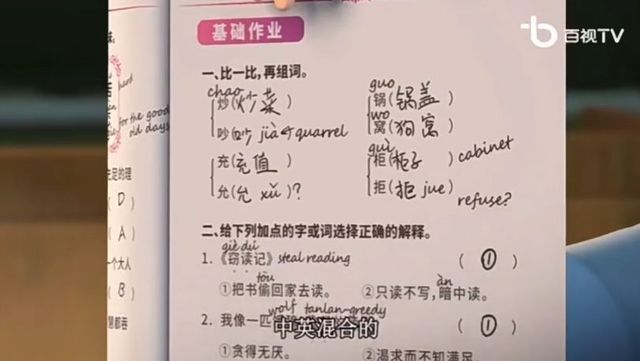 百视TV
基础作业
一、比一比,再组词。
chao guo
炒(炒菜) 锅(锅盖)
wo
吵(吵 jià 个 quarrel 窝(狗窝)
guì
充(充值) 柜(柜子) cabinet
允(允 xǔ)? 拒(拒 jue) refuse?
hard
for the good
old days
二、给下列加点的字或词选择正确的解释。
qiè dú
1.《窃读记》steal reading (①)
tōu àn
①把书偷回家去读。 ②只读不写,暗中读。
wolf tanlan~greedy
2. 我像一匹 (①)
①贪得无厌。 ②渴求而不知满足。
在足的理
(D)
(A)
一个大人
(B)
中英混合的